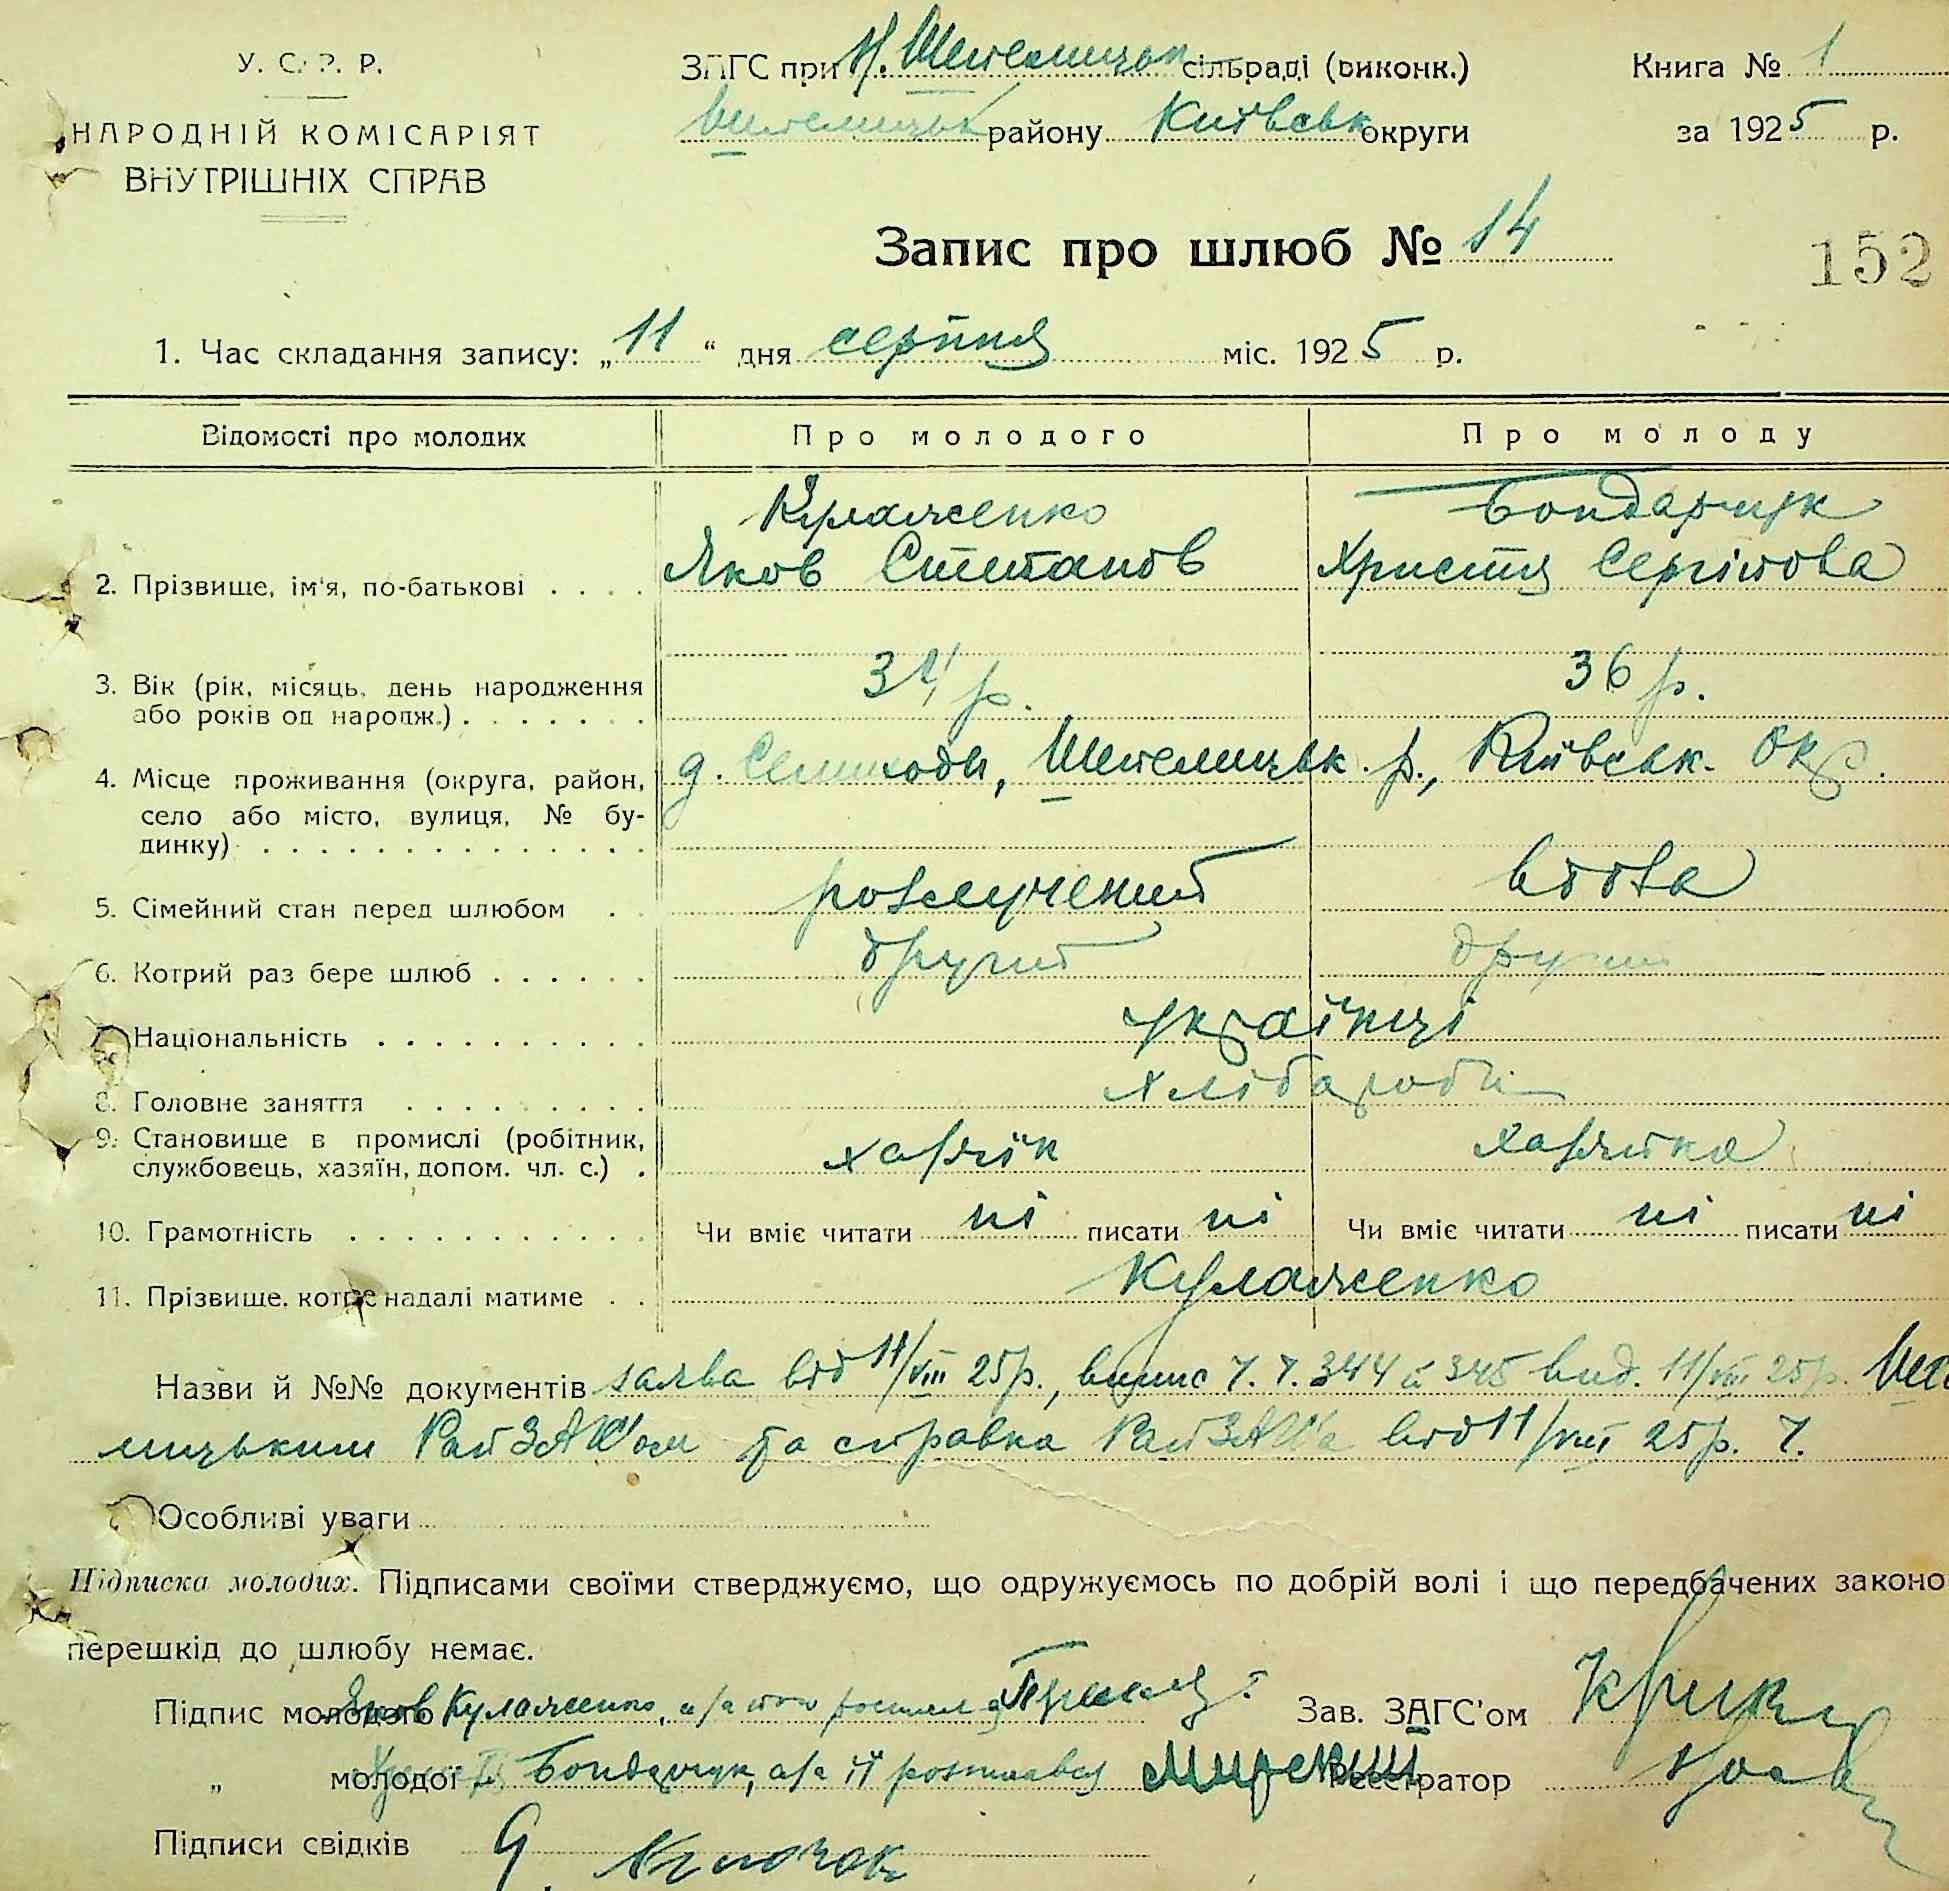 У. С. Р. Р.
НАРОДНІЙ КОМІСАРІЯТ
ВНУТРІШНІХ СПРАВ
ЗАГС при Н. Шепелицьк сільраді (виконк.)
Шепелицьк району Київськ округи
Книга № 1
за 1925 р.
Запис про шлюб № 14
152
1. Час складання запису: „11“ дня серпня міс. 1925 р.
Відомості про молодих Про молодого Про молоду
Кулаженко Бондарчук
2. Прізвище, ім'я, по-батькові . . . . Яков Степанов Христя Сергійова
3. Вік (рік, місяць, день народження 34 р. 36 р.
або років од народж.) . . . . . . .
4. Місце проживання (округа, район, д. Семиходи, Шепелицьк. р., Київськ. Окр.
село або місто, вулиця, № бу-
динку) . . . . . . . . . . . . . .
5. Сімейний стан перед шлюбом . . розлучений вдова
6. Котрий раз бере шлюб . . . . . . другий другий
7. Національність . . . . . . . . . . українці
8. Головне заняття . . . . . . . . . хлібороби
9. Становище в промислі (робітник, хазяїн хазяйка
службовець, хазяїн, допом. чл. с.) .
10. Грамотність . . . . . . . . . . . Чи вміє читати ні писати ні Чи вміє читати ні писати ні
11. Прізвище, котре надалі матиме . . Кулаженко
Назви й №№ документів заява від 11/VIII 25р., випис ч.ч. 344 й 345 вид. 11/VIII 25р. Шепе
лицьким РайЗАГС'ом та справка РайЗАГС'а від 11/VIII 25р. ч.
Особливі уваги
Підписка молодих. Підписами своїми стверджуємо, що одружуємось по добрій волі і що передбачених законо
перешкід до шлюбу немає.
Підпис молодого Яков Кулаженко, а за
Зав. ЗАГС'ом
„ молодої Бондарчук, а за її
Реєстратор
Підписи свідків